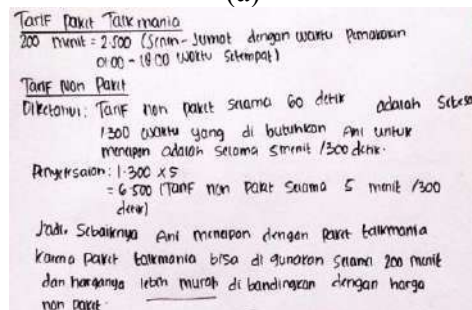 (a)
Tarif Paket Talkmania
200 menit = 2.500 (Senin - Jumat dengan waktu Pemakaian
01.00 - 18.00 waktu setempat)
Tarif Non Paket
Diketahui : Tarif non paket selama 60 detik adalah Sebesa
1300 waktu yang di butuhkan Ani untuk
menepon adalah selama 5 menit / 300 detik.
Penyelesaian : 1.300 x 5
= 6.500 (Tarif non Paket Selama 5 menit / 300
detik)
Jadi, Sebaiknya Ani menepon dengan Paket talkmania
karena Paket talkmania bisa di gunakan selama 200 menit
dan harganya lebih murah di bandingkan dengan harga
non paket.